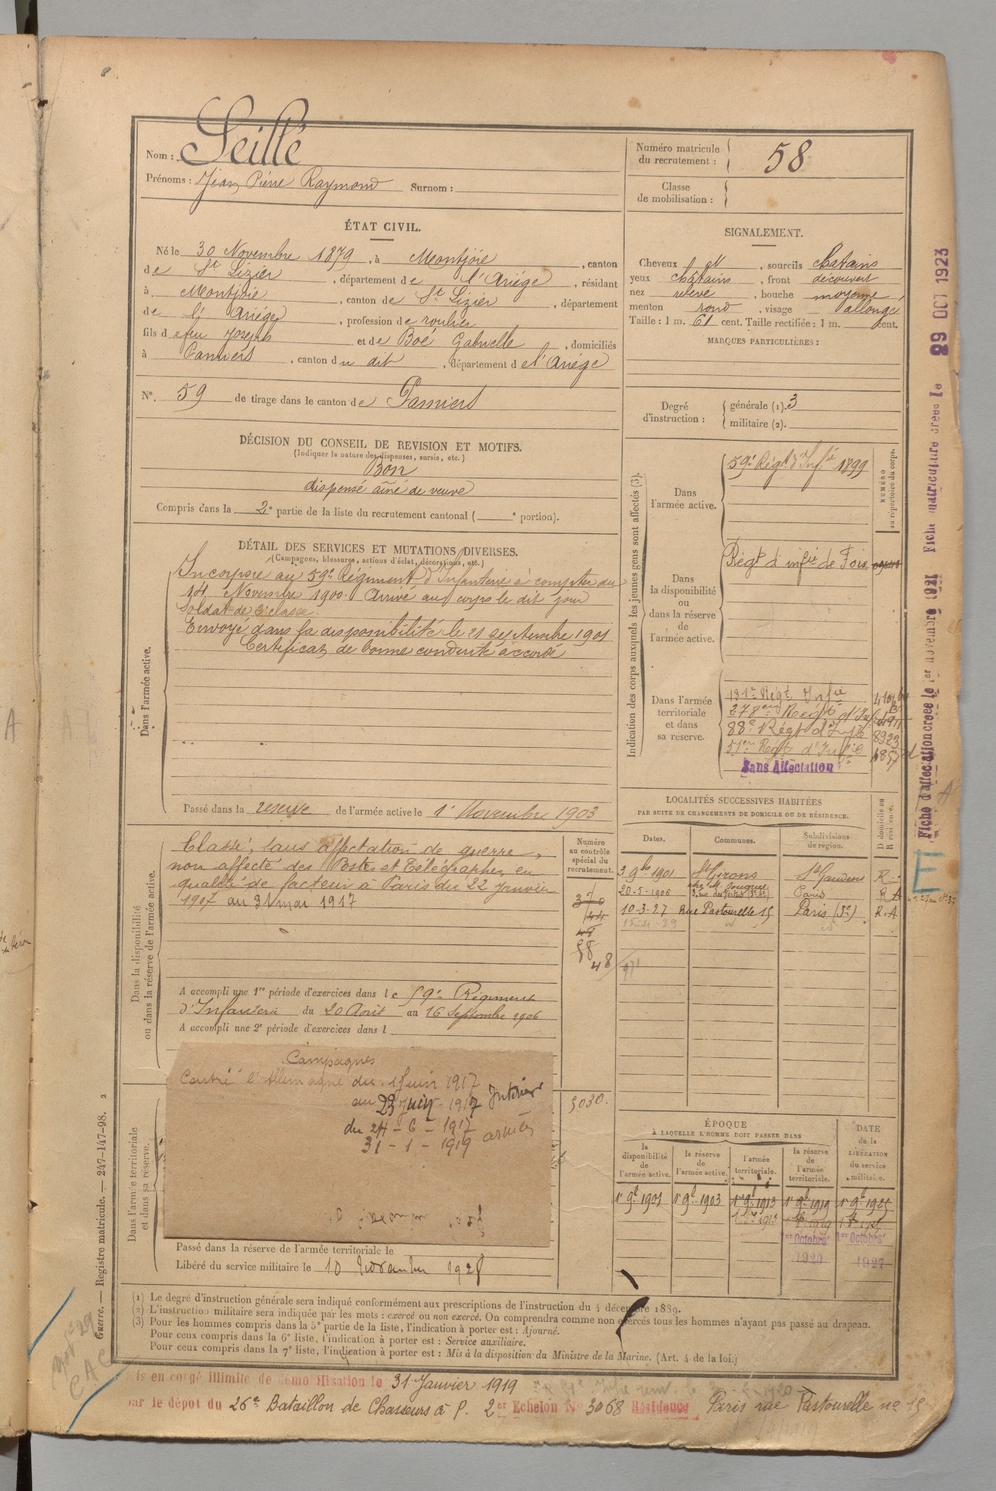 Nom : Seillé
Prénoms : Jean Pierre Raymond Surnom :
Numéro matricule du recrutement : 58
Classe de mobilisation :
ÉTAT CIVIL.
Né le 30 Novembre 1879, à Montjoie, canton
de St Lizier, département de l'Ariège, résidant
à Montjoie, canton de St Lizier, département
de l'Ariège, profession de roulier
fils de feu Joseph et de Boé Gabrielle, domiciliés
à Pamiers, canton du dit, département de l'Ariège
N° 59 de tirage dans le canton de Pamiers
SIGNALEMENT.
Cheveux, sourcils chatains
yeux chatains, front découvert
nez relevé, bouche moyenne,
menton rond, visage allongé
Taille : 1 m. 61 cent. Taille rectifiée : 1 m. cent.
MARQUES PARTICULIÈRES :
Degré d'instruction : générale (1). 3
militaire (2).
DÉCISION DU CONSEIL DE REVISION ET MOTIFS.
(Indiquer la nature des dispenses, sursis, etc.)
Bon
dispensé aîné de veuve
Compris dans la 2e partie de la liste du recrutement cantonal ( e portion).
DÉTAIL DES SERVICES ET MUTATIONS DIVERSES.
(Campagnes, blessures, actions d'éclat, décorations, etc.)
Dans l'armée active.
Incorporé au 59e Régiment d'Infanterie à compter du
Novembre 1900. Arrivé au corps le dit jour
soldat de 2e classe.
Envoyé dans la disponibilité le 21 septembre 1901
Certificat de bonne conduite accordé
Passé dans la réserve de l'armée active le 1er Novembre 1903
Indication des corps auxquels les jeunes gens sont affectés (3).
NUMÉRO au répertoire du corps.
Dans l'armée active.
59e Régt d'Infie 1899
Dans la disponibilité ou dans la réserve de l'armée active.
Régt d'infie de Foix
Dans l'armée territoriale et dans sa réserve.
131e Régt Infie
278e Régt d'Inf
88e Régt d'Infie 8923
51e Régt d'Infie
Sans Affectation
Dans la disponibilité ou dans la réserve de l'armée active.
Classé, sans affectation de guerre,
non affecté des Postes et Télégraphes en
qualité de facteur à Paris du 22 janvier
1907 au 31 mai 1917
A accompli une 1re période d'exercices dans le 59e Régiment
d'Infanterie du 20 Août au 16 Septembre 1906
A accompli une 2e période d'exercices dans l
Numéro au contrôle spécial du recrutement.
48
5030
LOCALITÉS SUCCESSIVES HABITÉES
PAR SUITE DE CHANGEMENTS DE DOMICILE OU DE RÉSIDENCE.
Dates. Communes. Subdivisions de région. D domicile ou R résidence.
3 9bre 1901 St Girons St Gaudens R.
20-5-1906 Paris R.
10-3-27 Rue Pastourelle 15 Paris (3e) R.A
Campagnes
Contre l'Allemagne du 1 Juin 1917
au 23 Juin 1917 Intérieur
du 24-6-1917
31-1-1919 armées
Dans l'armée territoriale et dans sa réserve.
Passé dans la réserve de l'armée territoriale le
Libéré du service militaire le 10 Novembre 1928
ÉPOQUE
À LAQUELLE L'HOMME DOIT PASSER DANS
la disponibilité de l'armée active. la réserve de l'armée active. l'armée territoriale. la réserve de l'armée territoriale. DATE de la LIBÉRATION du service militaire.
1er 9bre 1901 1er 9bre 1903 1er 9bre 1913 1er 9bre 1919 1er 9bre 1925
1er Octobre 1er Octobre
1920 1927
(1) Le degré d'instruction générale sera indiqué conformément aux prescriptions de l'instruction du 4 décembre 1889.
(2) L'instruction militaire sera indiquée par les mots : exercé ou non exercé. On comprendra comme non exercés tous les hommes n'ayant pas passé au drapeau.
(3) Pour les hommes compris dans la 5e partie de la liste, l'indication à porter est : Ajourné.
Pour ceux compris dans la 6e liste, l'indication à porter est : Service auxiliaire.
Pour ceux compris dans la 7e liste, l'indication à porter est : Mis à la disposition du Ministre de la Marine. (Art. 4 de la loi.)
is en congé illimité de démobilisation le 31 Janvier 1919
par le dépôt du 26e Bataillon de Chasseurs à P. 2e Echelon N° 3068 Résidence Paris rue Pastourelle no 15
Guerre. — Registre matricule. — 247-147-98. 2
Fiche d'affectation créée le 1er novembre 1921 Fiche matriculaire créée le 29 OCT 1923
E